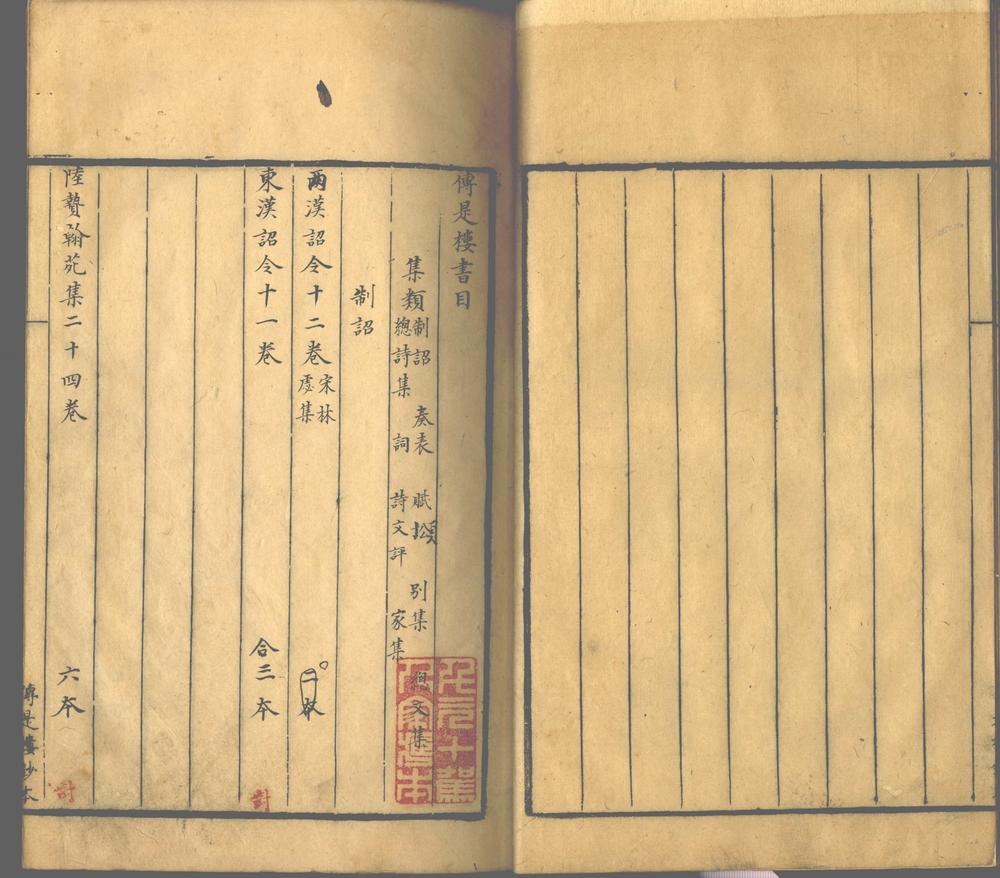 傳是樓書目
集類
制詔 奏表 賦頌 別集 總文集
總詩集 詞 詩文評 家集
制詔
兩漢詔令十二卷
宋林
虙集
二本
東漢詔令十一卷 合三本 對
陸贄翰苑集二十四卷 六本 對
傳是樓抄本
千元十駕
人家藏本